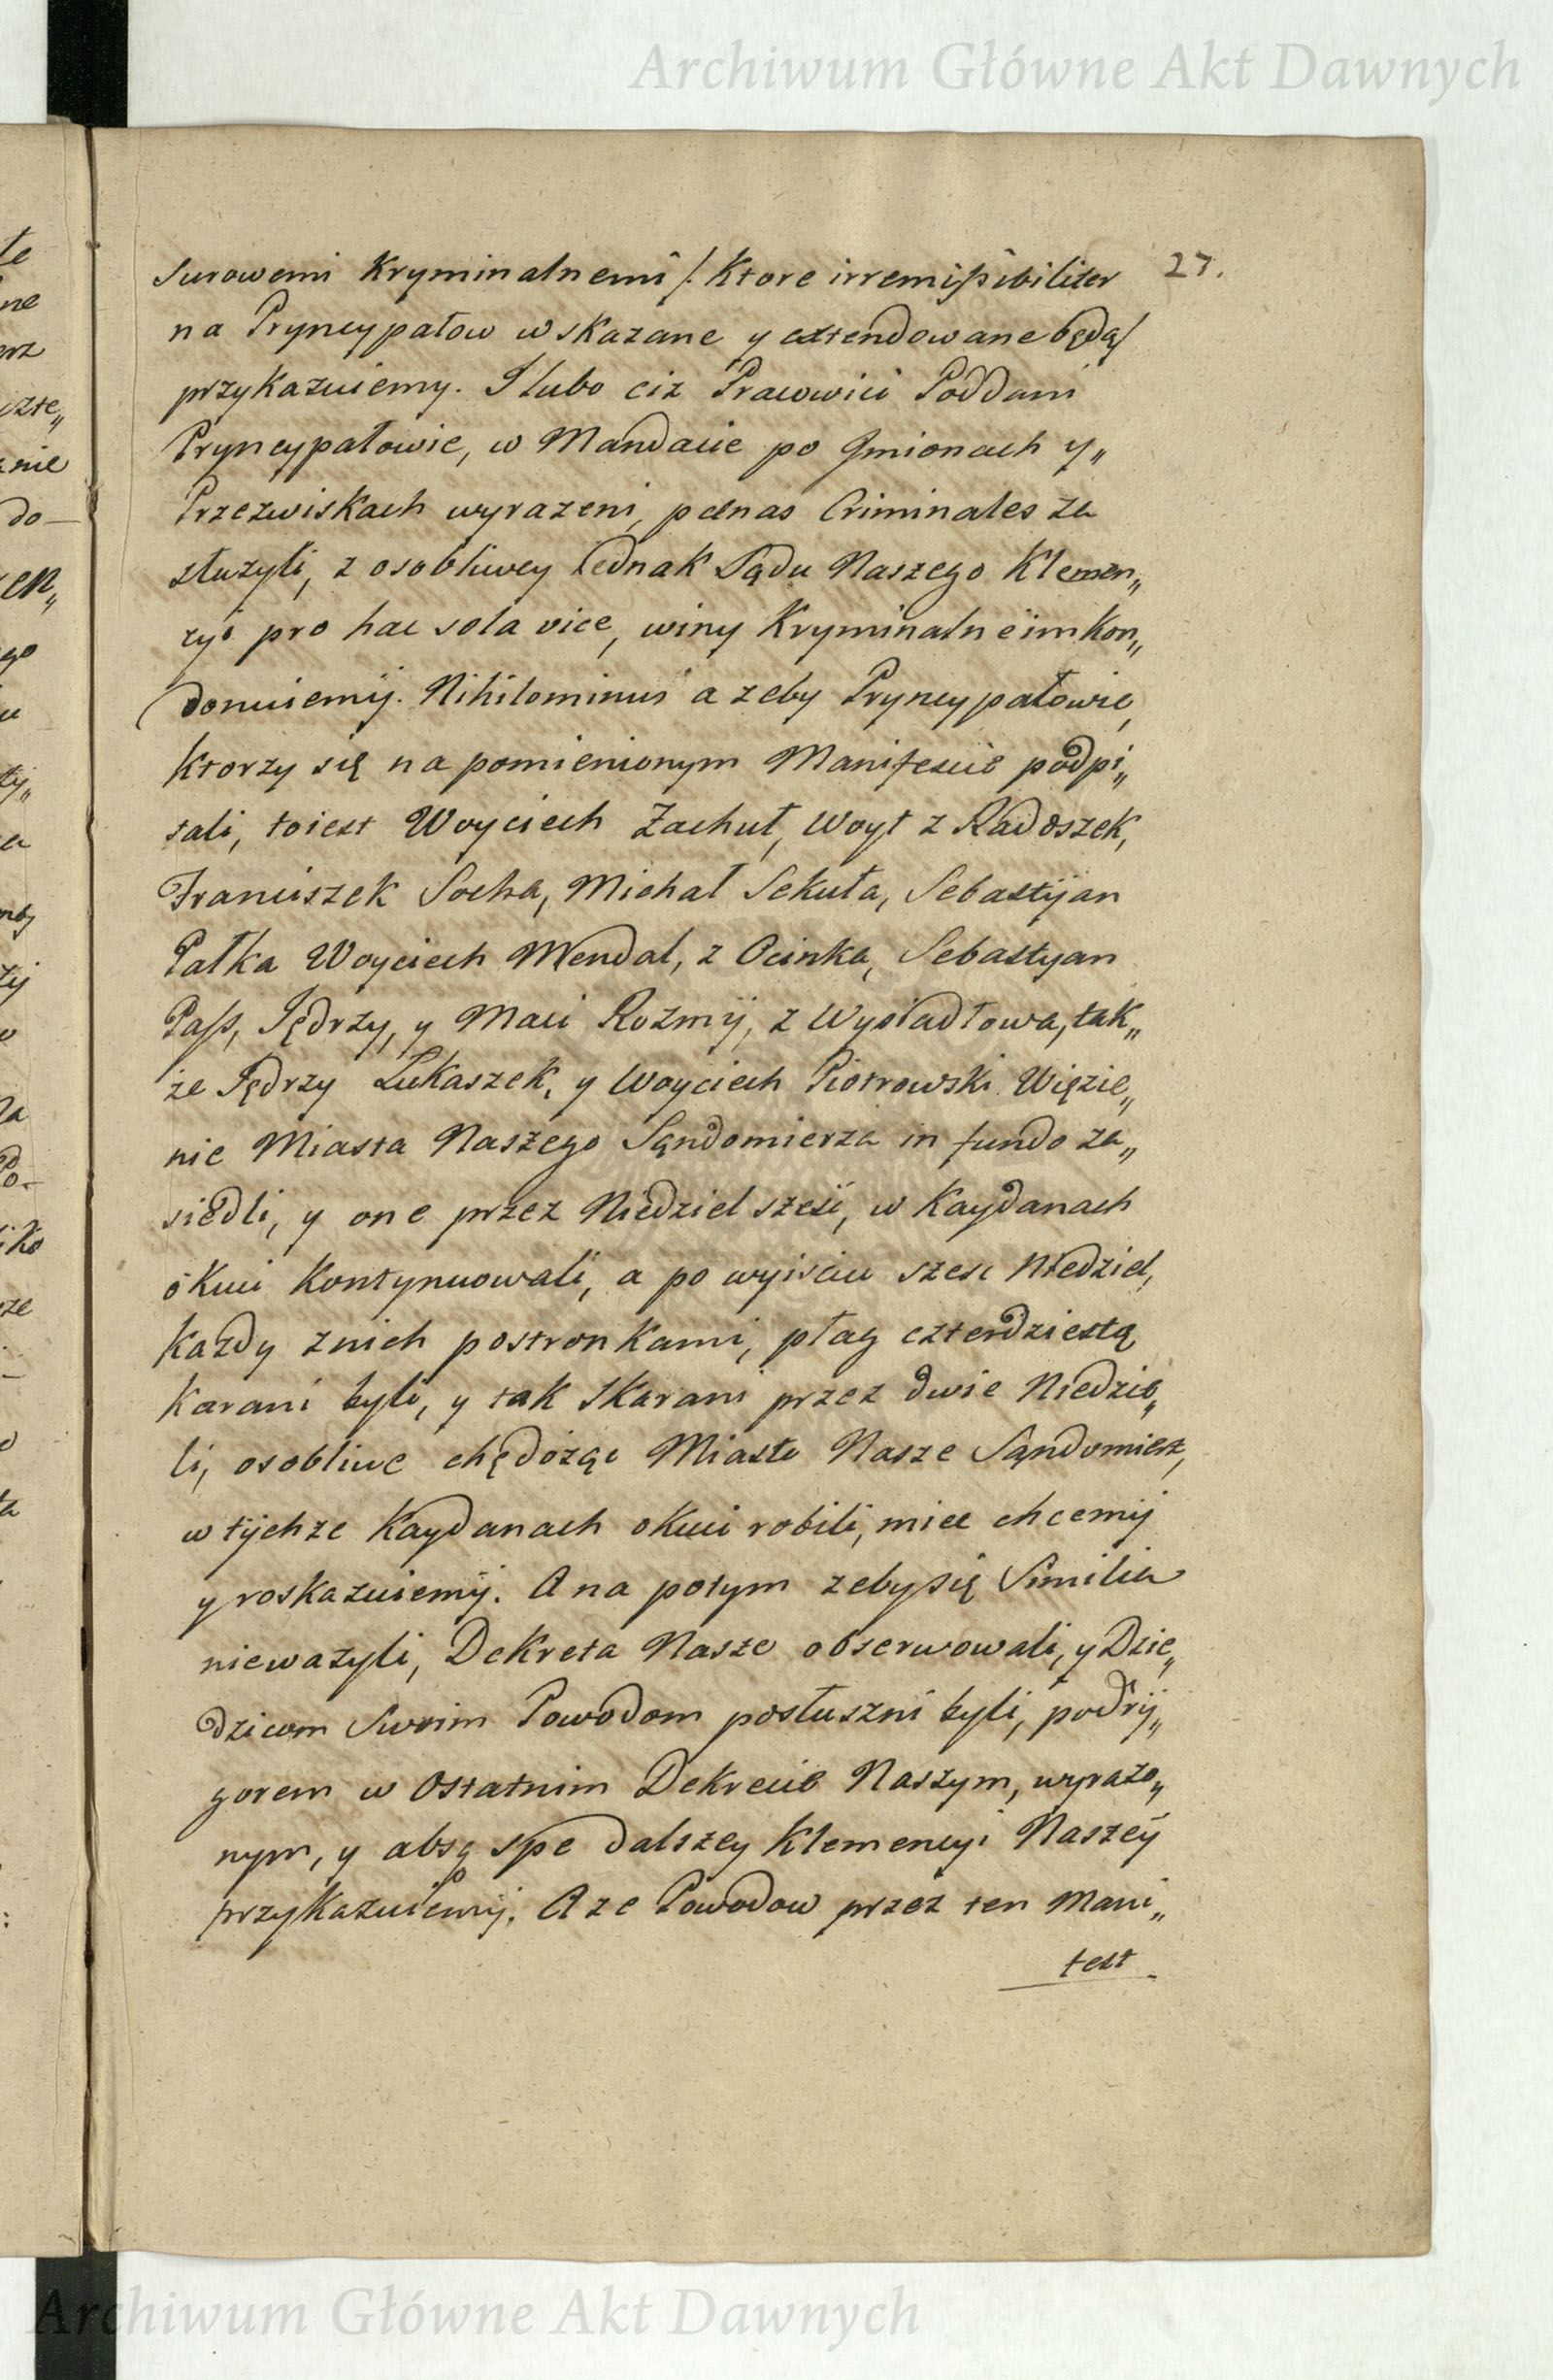 Archiwum Główne Akt Dawnych
27.
Surowemi Kryminalnemi /: Ktore irremissibiliter
na Pryncypałow wskazane y extendowane będą/
przykazuiemy. I lubo ciż Pracowici Poddani
Pryncypałowie, w Mandacie po Jmionach y„
Przezwiskach wyrazeni, pœnas Criminales za
służyli, z osobliwey iednak Sądu Naszego Klemen„
cyi pro hac sola vice, winy Kryminalne im kon„
donuiemij. Nihilominus a zeby Pryncypałowie,
Ktorzy się na pomienionym Manifescie podpi„
sali, toiest Woyciech Zachuł, Woyt z Radoszek,
Franciszek Socha, Michał Sekuła, Sebastijan
Pałka Woyciech Mendal, z Ocinka, Sebastyan
Pass, Jędrzy, y Maci Rozmij, z Wysiadłowa, tak„
że Jędrzy Łukaszek, y Woyciech Piotrowski Więzie„
nie Miasta Naszego Sąndomierza in fundo za„
siedli, y one przez Niedziel sześć, w Kaydanach
okuci kontynuowali, a po wyisciu szesc Niedziel,
Kazdy znich postronkami, plag czterdziestą
Karani byli, y tak skarani przez dwie Niedzie„
li, osobliwe chędożąc Miasto Nasze Sąndomierz,
w tychze Kaydanach okuci robili, miec chcemij
y roskazuiemij. A na potym zeby się Similia
niewazyli, Dekreta Nasze obserwowali, y Dzie„
dzicom Swoim Powodom posłuszni byli, pod rij„
gorem w Ostatnim Dekrecie Naszym, wyrazo„
nym, y absq spe dalszey Klemencyi Naszeÿ
przykazuiemij. A ze Powodow przez ten Mani„
fest
Archiwum Główne Akt Dawnych